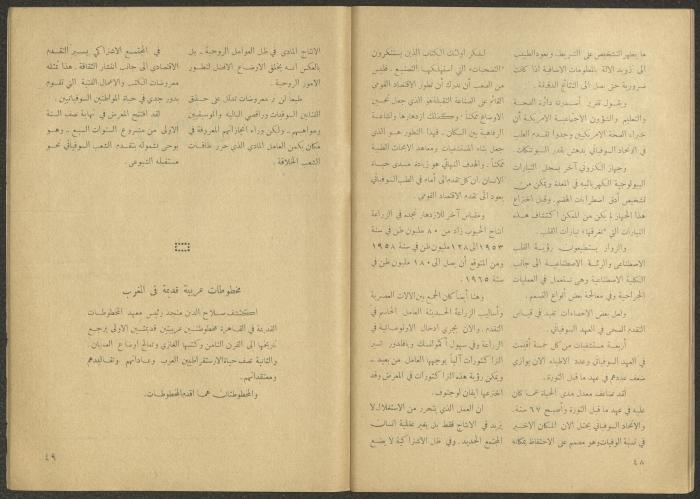 ما يظهر التشخيص على الشريط. ويعود الطبيب
الى تزويد الآلة بالمعلومات الاضافية اذا كانت
ضرورية حتى يصل الى النتائج الدقيقة.
ويقول تقرير اصدرته دائرة الصحة
والتعليم والشؤون الاجتماعية الامريكية أن
خبراء الصحة الامريكيين وجدوا تقدم الطب
في الاتحاد السوفياتي يدهش بقدر السبوتنيكات.
وجهاز الكتروني آخر يسجل التيارات
البيولوجية الكهربائية في المعدة ويمكن من
تشخيص أدق اضطرابات الهضم. وقبل اختراع
هذا الجهاز لم يكن من الممكن اكتشاف هذه
التيارات التي "تغرقها" تيارات القلب.
والزوار يستطيعون رؤية القلب
الاصطناعي والرئة الاصطناعية الى جانب
الكلية الاصطناعية وهي تستعمل في العمليات
الجراحية وفي معالجة بعض أنواع التسمم.
ولعل بعض الاحصاءات تفيد في قياس
التقدم الصحي في العهد السوفياتي.
أربعة مستشفيات من كل خمسة أقيمت
في العهد السوفياتي وعدد الاطباء الآن يوازي
ضعف عددهم في عهد ما قبل الثورة.
لقد تضاعف معدل مدى الحياة عما كان
عليه في عهد ما قبل الثورة وأصبح ٦٧ سنة.
والاتحاد السوفياتي يحتل الآن المكان الاخير
في نسبة الوفيات وهو مصمم على الاحتفاظ بمكانه
٤٨
ليذكر أولئك الكتاب الذين يستنكرون
"التضحيات" التي استهلكها التصنيع. فليس
من الصعب أن ندرك أن تطور الاقتصاد القومي
القائم على الصناعة الثقيلة هو الذي جعل تحسين
الاوضاع ممكناً. وكذلك ازدهارها واشاعة
الرفاهية بين السكان. فهذا التطور هو الذي
جعل بناء المستشفيات ومعاهد الابحاث الطبية
ممكناً. والهدف النهائي هو زيادة مدى حياة
الانسان. ان كل تقدم الى أمام في الطب السوفياتي
يعود الى تقدم الاقتصاد القومي.
ومقياس آخر للازدهار نجده في الزراعة
انتاج الحبوب زاد من ٨٠ مليون طن في سنة
١٩٥٣ الى ١٣٨ مليون طن في سنة ١٩٥٨
ومن المتوقع أن يصل الى ١٨٠ مليون طن في
سنة ١٩٦٥.
وهنا أيضاً كان الجمع بين الآلات العصرية
وأساليب الزراعة الحديثة العامل الحاسم في
التقدم. والآن يجري ادخال الاوتوماتية في
الزراعة وفي سهول أكمولنسك وبافلودر تسير
التراكتورات آلياً يوجهها العامل من بعيد.
ويمكن رؤية هذه التراكتورات في المعرض وقد
اخترعها ايفان لوجينوف.
ان العمل الذي يتحرر من الاستغلال لا
يزيد في الانتاج فقط بل يغير عقلية انسان
المجتمع الجديد. وفي ظل الاشتراكية لا يضع
الانتاج المادي في ظل العوامل الروحية. بل
بالعكس انه يخلق الاوضاع الافضل لتطور
الامور الروحية.
طبعاً لن تر معروضات تدلل على خلق
الفنانين السوفيات وراقصي الباليه والموسيقيين
ومواهبهم. ولكن وراء انجازاتهم المعروفة في
مكان يكمن العامل المادي الذي حرر طاقات
الشعب الخلاقة.
في المجتمع الاشتراكي يسير التقدم
الاقتصادي الى جانب انتشار الثقافة. هذا تمثله
معروضات الكتب والاعمال الفنية التي تقوم
بدور جدي في حياة المواطنين السوفياتيين.
لقد افتتح المعرض في نهاية نصف السنة
الاولى من مشروع السنوات السبع. وهو
يوحي بشموله بتقدم الشعب السوفياتي نحو
مستقبله الشيوعي.
مخطوطات عربية قديمة في المغرب
اكتشف صلاح الدين منجد رئيس معهد المخطوطات
القديمة في القاهرة مخطوطتين عربيتين قديمتين الاولى يرجع
تاريخها الى القرن الثامن وكتبها الغازي وتعالج اوضاع العميان.
والثانية تصف حياة الارستقراطيين العرب وعاداتهم وتقاليدهم
ومعتقداتهم.
والمخطوطتان هما اقدم المخطوطات.
٤٩